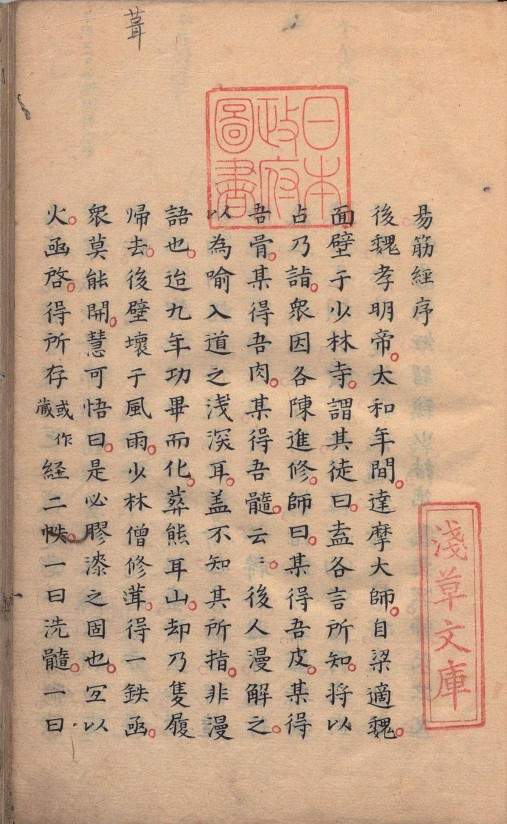 葺
日本
政府
圖書
易筋經序
後魏孝明帝。太和年間。達摩大師。自梁適魏。
面壁于少林寺。謂其徒曰。盍各言所知。將以
占乃詣。衆因各陳進修。師曰。某得吾皮。某得
吾骨。某得吾肉。某得吾髓。云〻後人漫解之。
以為喻入道之浅深耳。盖不知其所指。非漫
語也。迨九年功畢而化。葬熊耳山。却乃隻履
帰去。後壁壞于風雨。少林僧修葺。得一鉄函。
衆莫能開。慧可悟曰。是必膠漆之固也。宜以
火函啓。得所存或作蔵経二帙。一曰洗髓。一曰
淺草文庫